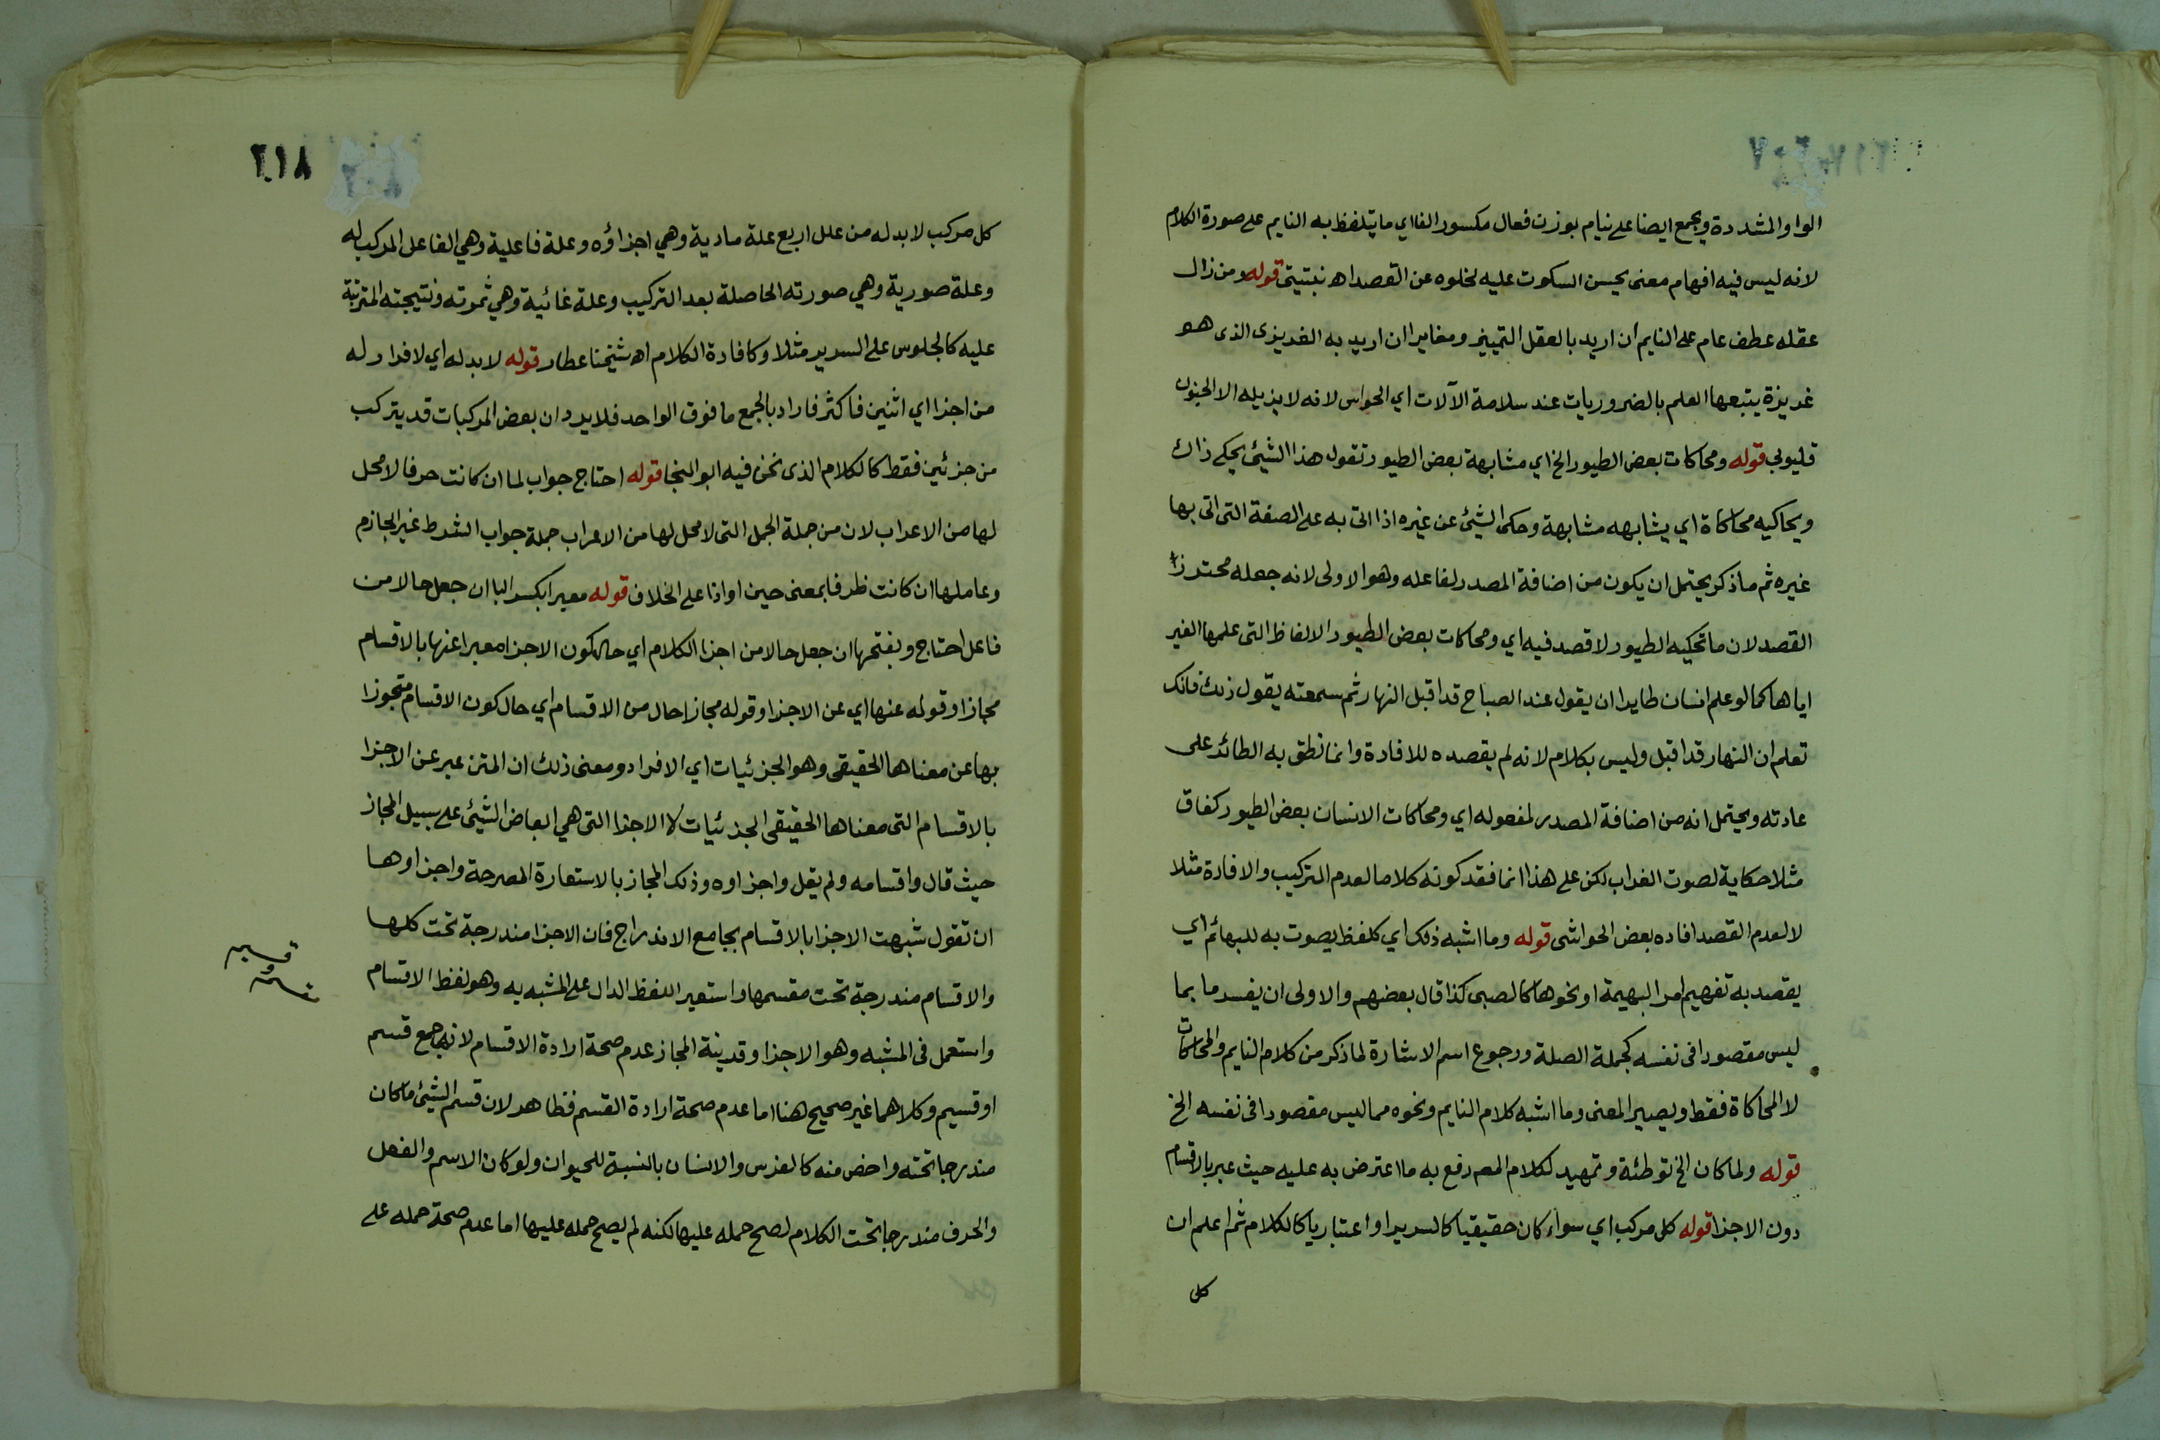 الواو المشددة ويجمع ايضا على نيام بوزن فعال مكسور الفا اي ما يتلفظ به النايم على صورة الكلام
لانه ليس فيه افهام معنى يحسن السكوت عليه لخلوه عن القصد اهـ نبتيتي قوله ومن زال
عقله عطف عام على النايم ان اريد بالعقل التمييز ومغاير ان اريد به الغريزى الذى هو
غريزة يتبعها العلم بالضروريات عند سلامة الآلات اي الحواس لانه لا يزيله الا الجنون
قليوبي قوله ومحاكات بعض الطيور الخ اي مشابهة بعض الطيور تقول هذا الشيئ يحكي ذاك
ويحاكيه محاكاة اي يشابهه مشابهة وحكى الشيئ عن غيره اذا اتى به على الصفة التى اتى بها
غيره ثم ما ذكر يحتمل ان يكون من اضافة المصدر لفاعله وهو الاولى لانه جعله محترز
القصد لان ما تحكيه الطيور لا قصد فيه اي ومحاكات بعض الطيور الالفاظ التى علمها الغير
اياها كما لو علم انسان طايرا ان يقول عند الصباح قد اقبل النهار ثم سمعته يقول ذلك فانك
تعلم ان النهار قد اقبل وليس بكلام لانه لم يقصده للافادة وانما نطق به الطائر على
عادته ويحتمل انه من اضافة المصدر لمفعوله اي ومحاكات الانسان بعض الطيور كغاق
مثلا حكاية لصوت الغراب لكن على هذا انما فقد كونه كلاما لعدم التركيب والافادة مثلا
لا لعدم القصد افاده بعض الحواشى قوله وما اشبه ذلك اي كلفظ يصوت به للبهائم اي
يقصد به تفهيم امر البهيمة او نحوها كالصبى كذا قال بعضهم والاولى ان يفسر ما بما
ليس مقصودا فى نفسه كجملة الصلة ورجوع اسم الاشارة لما ذكر من كلام النايم والمحاكات
لا المحاكاة فقط ويصير المعنى وما اشبه كلام النايم ونحوه مما ليس مقصودا فى نفسه الخ
قوله ولما كان الخ توطئة وتمهيد لكلام المص دفع به ما اعترض به عليه حيث عبر بالاقسام
دون الاجزا قوله كل مركب اي سواء كان حقيقيا كالسرير او اعتباريا كالكلام ثم اعلم ان
كل
٢١٨
كل مركب لا بد له من علل اربع علة مادية وهي اجزاؤه وعلة فاعلية وهي الفاعل المركب له
وعلة صورية وهي صورته الحاصلة بعد التركيب وعلة غائية وهي ثمرته ونتيجته المترتبة
عليه كالجلوس على السرير مثلا وكافادة الكلام اهـ شيخنا عطار قوله لا بد له اي لا فرار له
من اجزا اي اثنين فاكثر فاراد بالجمع ما فوق الواحد فلا يرد ان بعض المركبات قد يتركب
من جزئين فقط كالكلام الذى نحن فيه ابو النجا قوله احتاج جواب لما ان كانت حرفا لا محل
لها من الاعراب لان من جملة الجمل التى لا محل لها من الاعراب جملة جواب الشرط غير الجازم
وعاملها ان كانت ظرفا بمعنى حين او اذ على الخلاف قوله معبرا بكسر البا ان جعل حالا من
فاعل احتاج وبفتحها ان جعل حالا من اجزا الكلام اي حال كون الاجزا معبرا عنها بالاقسام
مجازا وقوله عنها اي عن الاجزا وقوله مجازا حال من الاقسام اي حال كون الاقسام متجوزا
بها عن معناها الحقيقى وهو الجزئيات اي الافراد ومعنى ذلك ان المتن عبر عن الاجزا
بالاقسام التى معناها الحقيقى الجزئيات لا الاجزا التى هي ابعاض الشيئ على سبيل المجاز
حيث قال واقسامه ولم يقل واجزاوه وذلك المجاز بالاستعارة المصرحة واجزاوها
ان تقول شبهت الاجزا بالاقسام بجامع الاندراج فان الاجزا مندرجة تحت كلها
والاقسام مندرجة تحت مقسمها واستعير اللفظ الدال على المشبه به وهو لفظ الاقسام
واستعمل فى المشبه وهو الاجزا وقرينة المجاز عدم صحة ارادة الاقسام لانه جمع قسم
او قسيم وكلاهما غير صحيح هنا اما عدم صحة ارادة القسم فظاهر لان قسم الشيئ ما كان
مندرجا تحته واخص منه كالفرس والانسان بالنسبة للحيوان ولو كان الاسم والفعل
والحرف مندرجا تحت الكلام لصح حمله عليها لكنه لم يصح حمله عليها اما عدم صحة حمله على